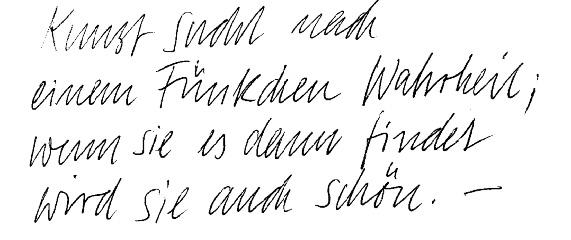 Kunst sucht nach
einem Fünkchen Wahrheit;
wenn sie es dann findet
wird sie auch schön. –